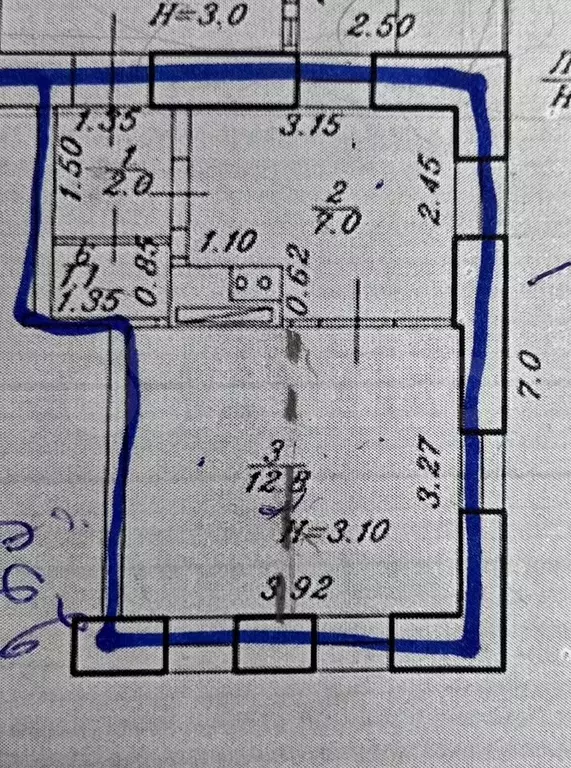 H=3.0
2.50
П
Н
1.35
3.15
1.50
1
2.0
2
7.0
2.45
1.10
6
1.1
0.85
0.62
1.35
7.0
3
12.8
3.27
H=3.10
3.92